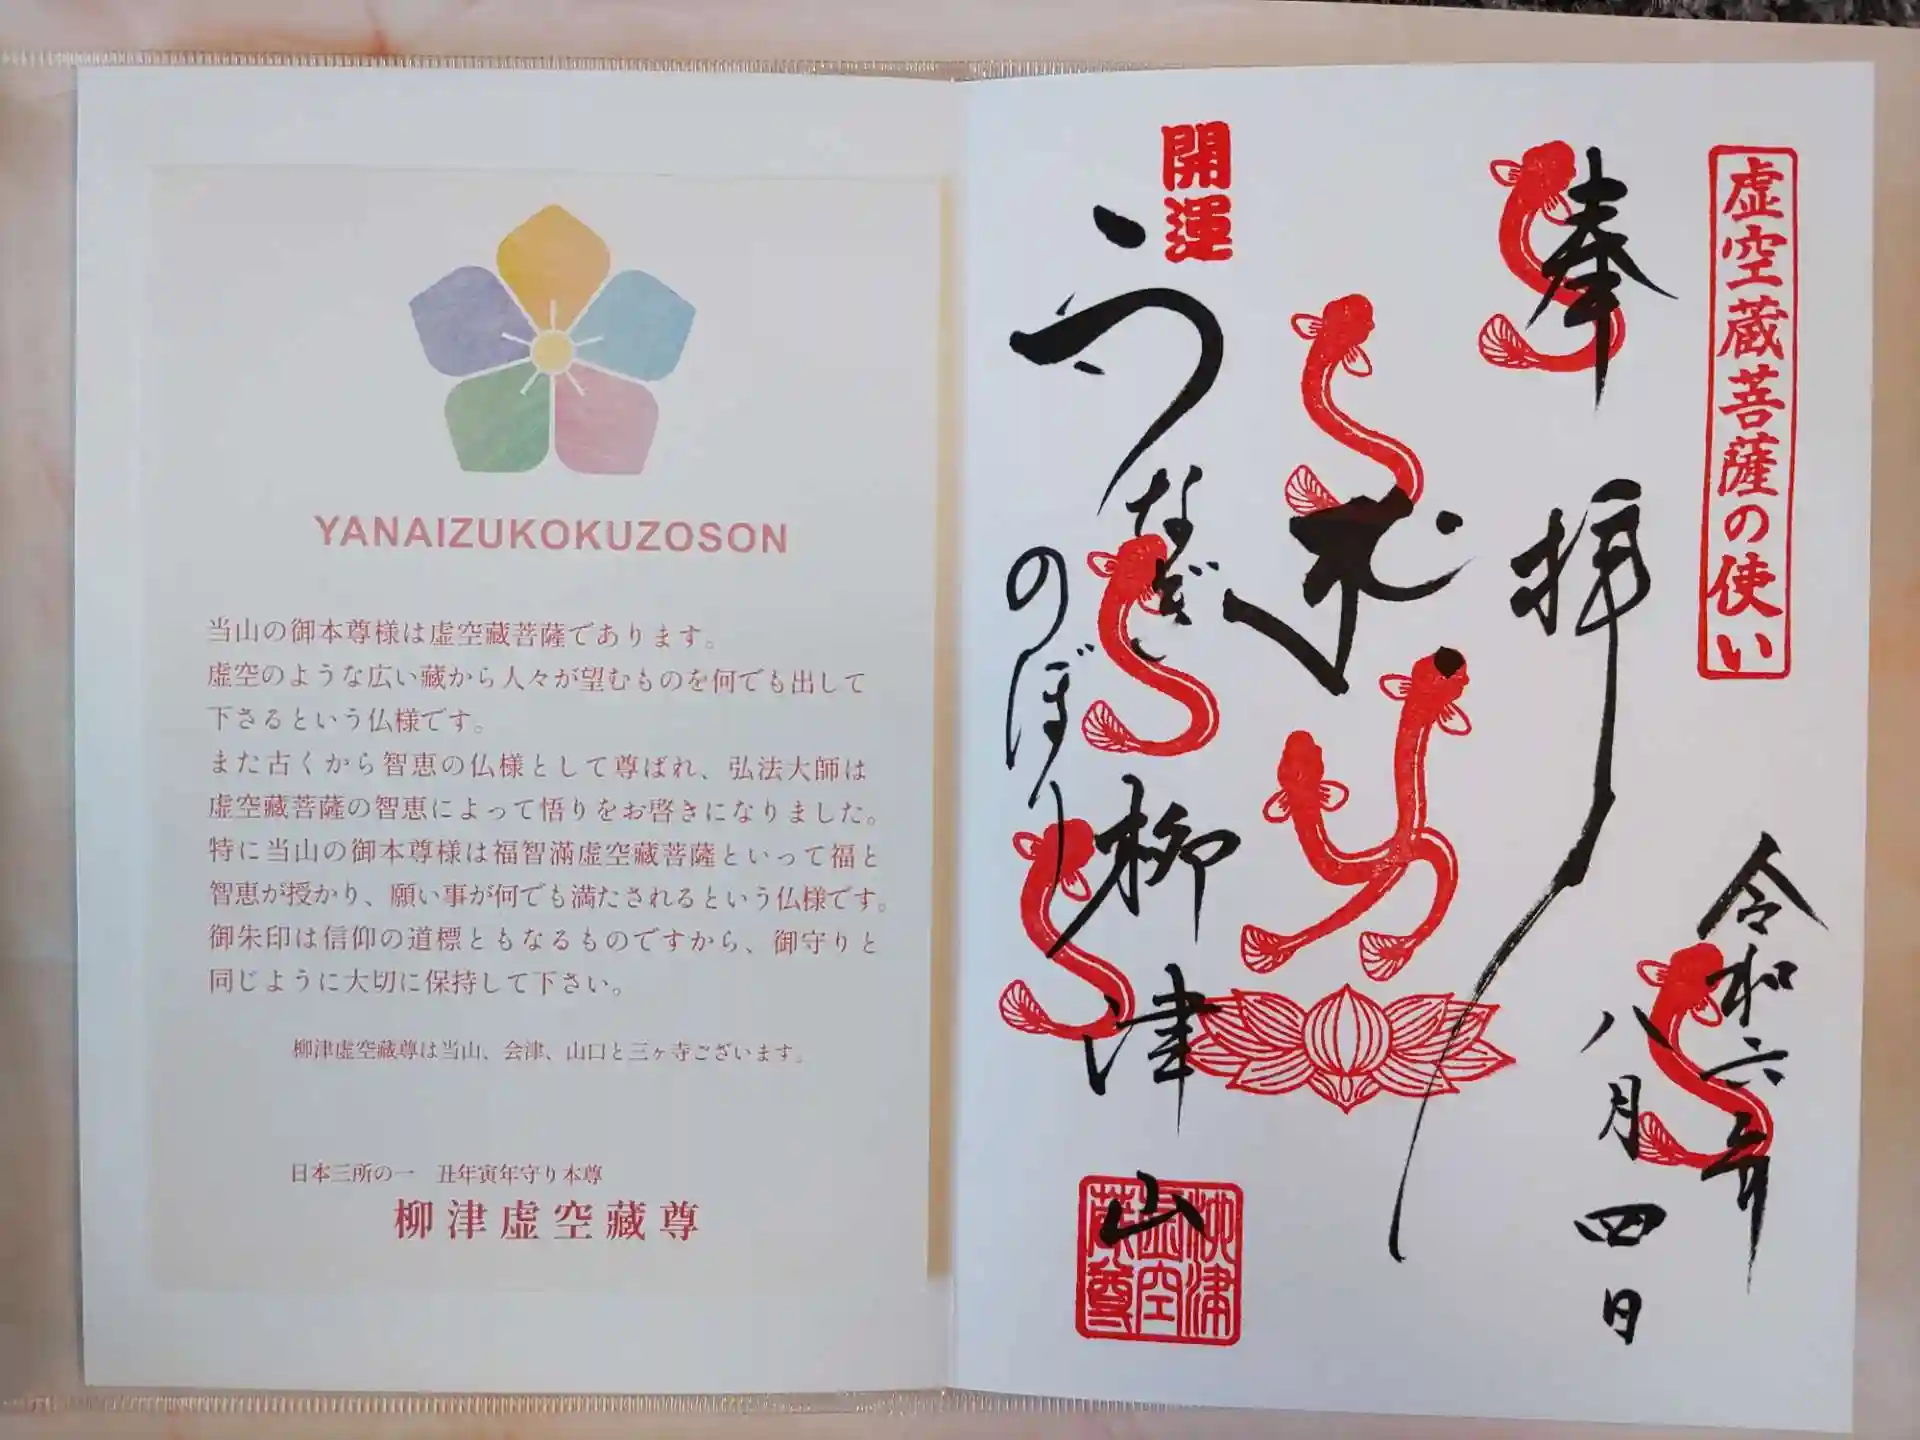 YANAIZUKOKUZOSON
当山の御本尊様は虚空藏菩薩であります。
虚空のような広い藏から人々が望むものを何でも出して
下さるという仏様です。
また古くから智恵の仏様として尊ばれ、弘法大師は
虚空藏菩薩の智恵によって悟りをお啓きになりました。
特に当山の御本尊様は福智滿虚空藏菩薩といって福と
智恵が授かり、願い事が何でも満たされるという仏様です。
御朱印は信仰の道標ともなるものですから、御守りと
同じように大切に保持して下さい。
柳津虚空藏尊は当山、会津、山口と三ヶ寺ございます。
日本三所の一　丑年寅年守り本尊
柳津虚空藏尊
虚空蔵菩薩の使い
令和六年
八月四日
奉拝
開運
うなぎ
のぼり
柳津山
柳津
虚空
蔵尊